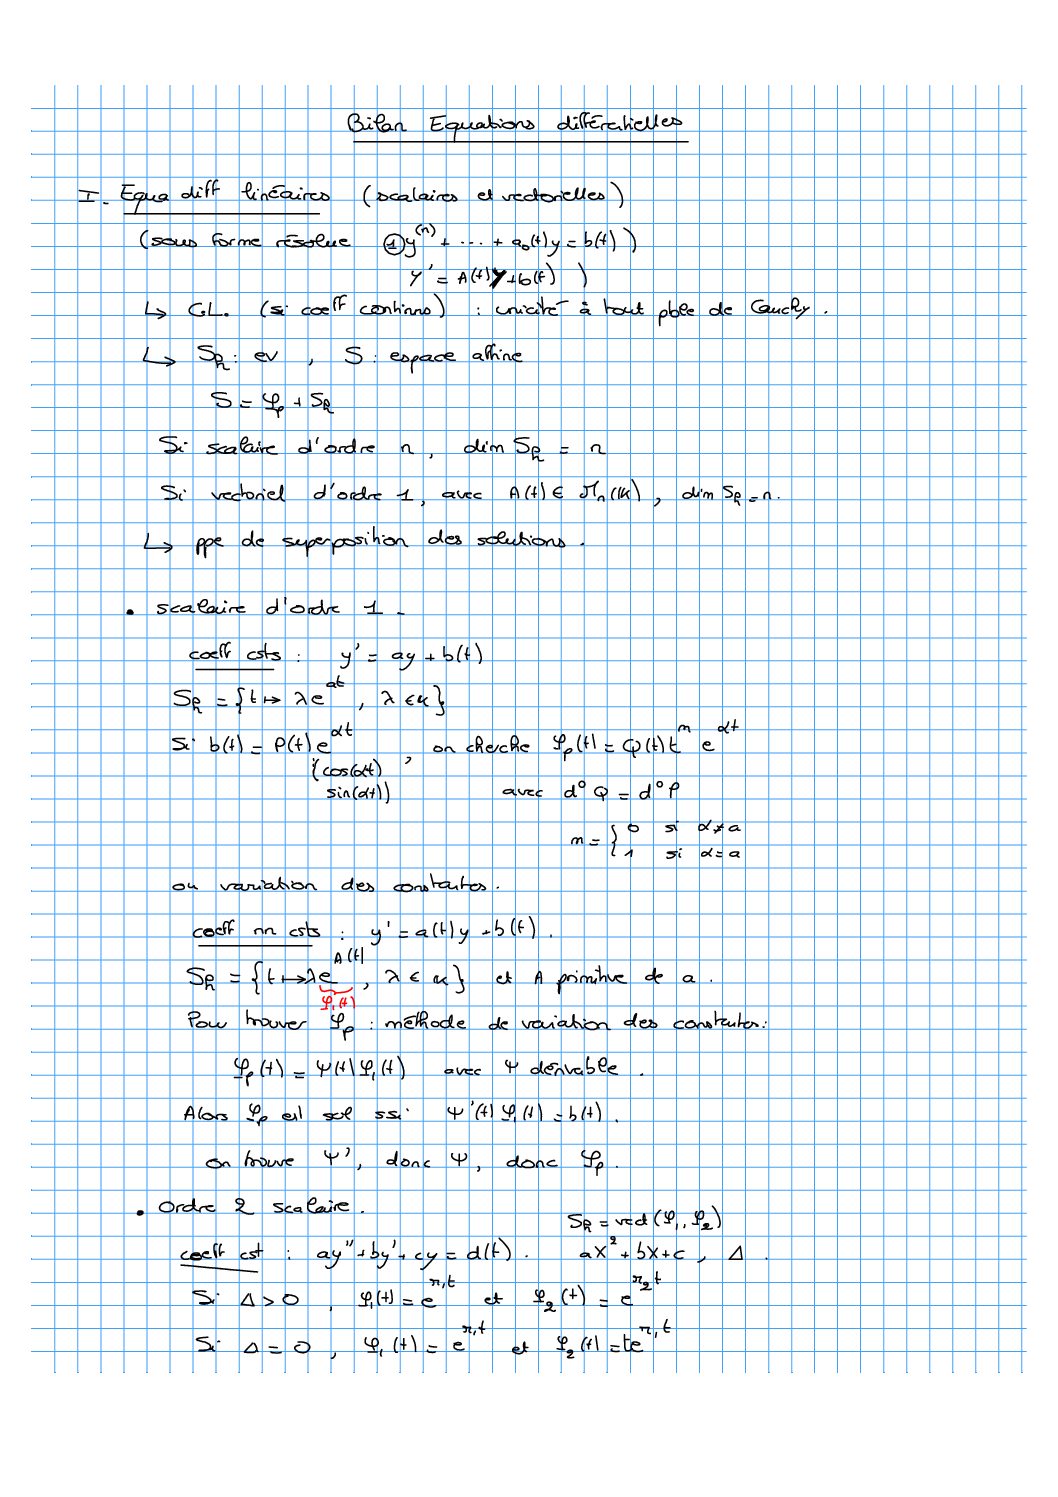 Bilan Equations différentielles
I. Equa diff linéaires (scalaires et vectorielles)
(sous forme résolue ① y^(n) + ... + a₀(t)y = b(t) )
Y' = A(t)Y + b(t) )
↳ CL. (si coeff continus) : unicité à tout pble de Cauchy.
↳ S_h : ev , S : espace affine
S = φ_p + S_h
Si scalaire d'ordre n, dim S_h = n
Si vectoriel d'ordre 1, avec A(t) ∈ M_n(K), dim S_h = n.
↳ ppe de superposition des solutions.
• scalaire d'ordre 1 -
coeff csts : y' = ay + b(t)
S_h = {t ↦ λe^(at), λ ∈ K}
Si b(t) = P(t)e^(αt), on cherche φ_p(t) = Q(t)t^m e^(αt)
(cos(αt)
sin(αt)) avec d°Q = d°P
m = { 0 si α ≠ a
1 si α = a
ou variation des constantes.
coeff nn csts : y' = a(t)y + b(t).
S_h = {t ↦ λe^(A(t)), λ ∈ K} et A primitive de a.
φ₁(t)
Pour trouver φ_p : méthode de variation des constantes:
φ_p(t) = Ψ(t)φ₁(t) avec Ψ dérivable.
Alors φ_p est sol ssi Ψ'(t)φ₁(t) = b(t).
on trouve Ψ', donc Ψ, donc φ_p.
• Ordre 2 scalaire.
S_h = vect(φ₁, φ₂)
coeff cst : ay'' + by' + cy = d(t). aX² + bX + c, Δ.
Si Δ > 0, φ₁(t) = e^(r₁t) et φ₂(t) = e^(r₂t)
Si Δ = 0, φ₁(t) = e^(r₁t) et φ₂(t) = te^(r₁t)